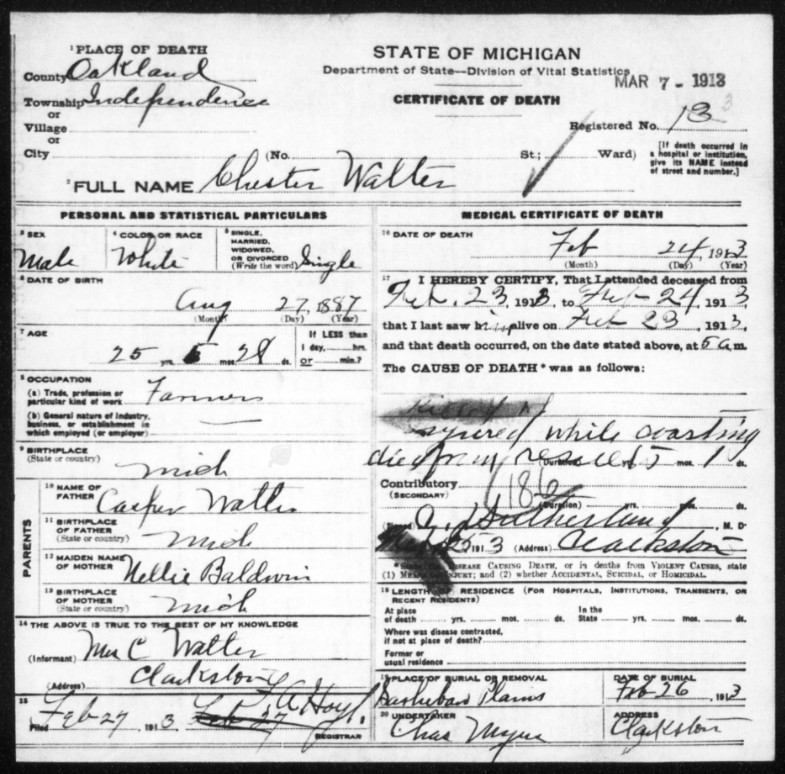 1 PLACE OF DEATH
County Oakland
Township Independence
or
Village
or
City (No. St.; Ward)
STATE OF MICHIGAN
Department of State—Division of Vital Statistics
MAR 7 - 1913
CERTIFICATE OF DEATH
Registered No. 13 3
[If death occurred in a hospital or institution, give its NAME instead of street and number.]
2 FULL NAME Chester Walter
PERSONAL AND STATISTICAL PARTICULARS
3 SEX
Male
4 COLOR OR RACE
White
5 SINGLE, MARRIED, WIDOWED, OR DIVORCED
(Write the word) Single
6 DATE OF BIRTH
Aug 27, 1887
(Month) (Day) (Year)
7 AGE
25 yrs. 5 mos. 28 ds.
If LESS than 1 day, hrs. or min.?
8 OCCUPATION
(a) Trade, profession or particular kind of work Farmer
(b) General nature of industry, business, or establishment in which employed (or employer)
9 BIRTHPLACE
(State or country)
Mich
PARENTS
10 NAME OF FATHER
Casper Walter
11 BIRTHPLACE OF FATHER
(State or country)
Mich
12 MAIDEN NAME OF MOTHER
Nellie Baldwin
13 BIRTHPLACE OF MOTHER
(State or country)
Mich
14 THE ABOVE IS TRUE TO THE BEST OF MY KNOWLEDGE
(Informant) Mrs C Walter
(Address) Clarkston
15
Filed Feb 27 1913 Feb 27 Hoyt.
REGISTRAR
MEDICAL CERTIFICATE OF DEATH
16 DATE OF DEATH
Feb 24, 1913
(Month) (Day) (Year)
17 I HEREBY CERTIFY, That I attended deceased from
Feb. 23, 1913, to Feb 24 1913
that I last saw him alive on Feb 23, 1913,
and that death occurred, on the date stated above, at 5 a m.
The CAUSE OF DEATH* was as follows:
while coasting
died from results
(Duration) yrs. mos. 1 ds.
Contributory
(SECONDARY)
186
(Duration) yrs. mos. ds.
(Signed) Sutherland, M. D.
25 1913 (Address) Clarkston
*State the DISEASE CAUSING DEATH, or in deaths from VIOLENT CAUSES, state (1) MEANS OF INJURY; and (2) whether ACCIDENTAL, SUICIDAL, or HOMICIDAL.
18 LENGTH OF RESIDENCE (FOR HOSPITALS, INSTITUTIONS, TRANSIENTS, OR RECENT RESIDENTS)
At place of death yrs. mos. ds. In the State yrs. mos. ds.
Where was disease contracted, if not at place of death?
Former or usual residence
19 PLACE OF BURIAL OR REMOVAL
Plains
DATE OF BURIAL
Feb 26, 1913
20 UNDERTAKER
Chas Myers
ADDRESS
Clarkston